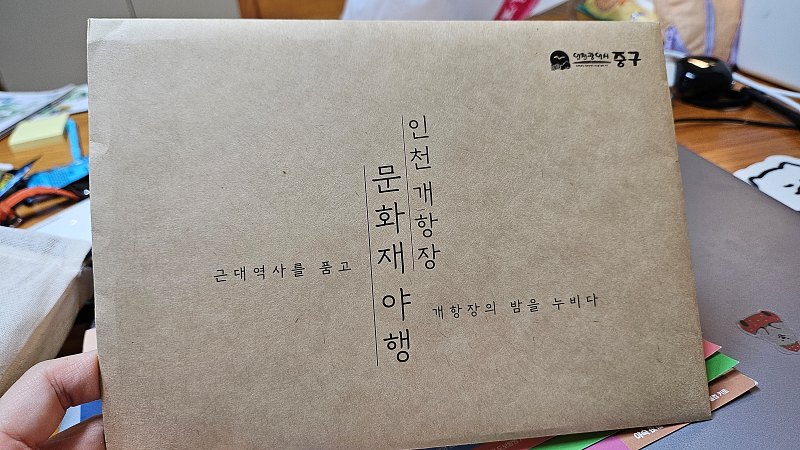 인천광역시 중구
인천개항장
문화재야행
근대역사를 품고
개항장의 밤을 누비다